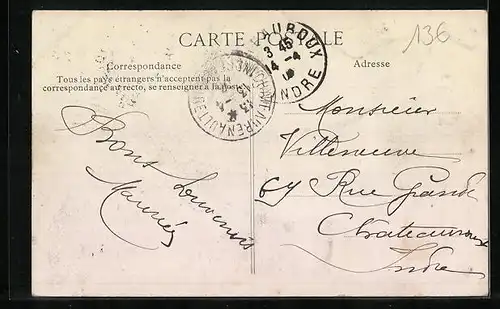 CARTE POSTALE
136
Correspondance
Adresse
Tous les pays étrangers n'acceptent pas la
correspondance au recto, se renseigner à la poste
3 45
14 -4
INDRE
Bons Souvenirs
Maurice
Monsieur
Villeneuve
67 Rue Grande
Chateauroux
Indre